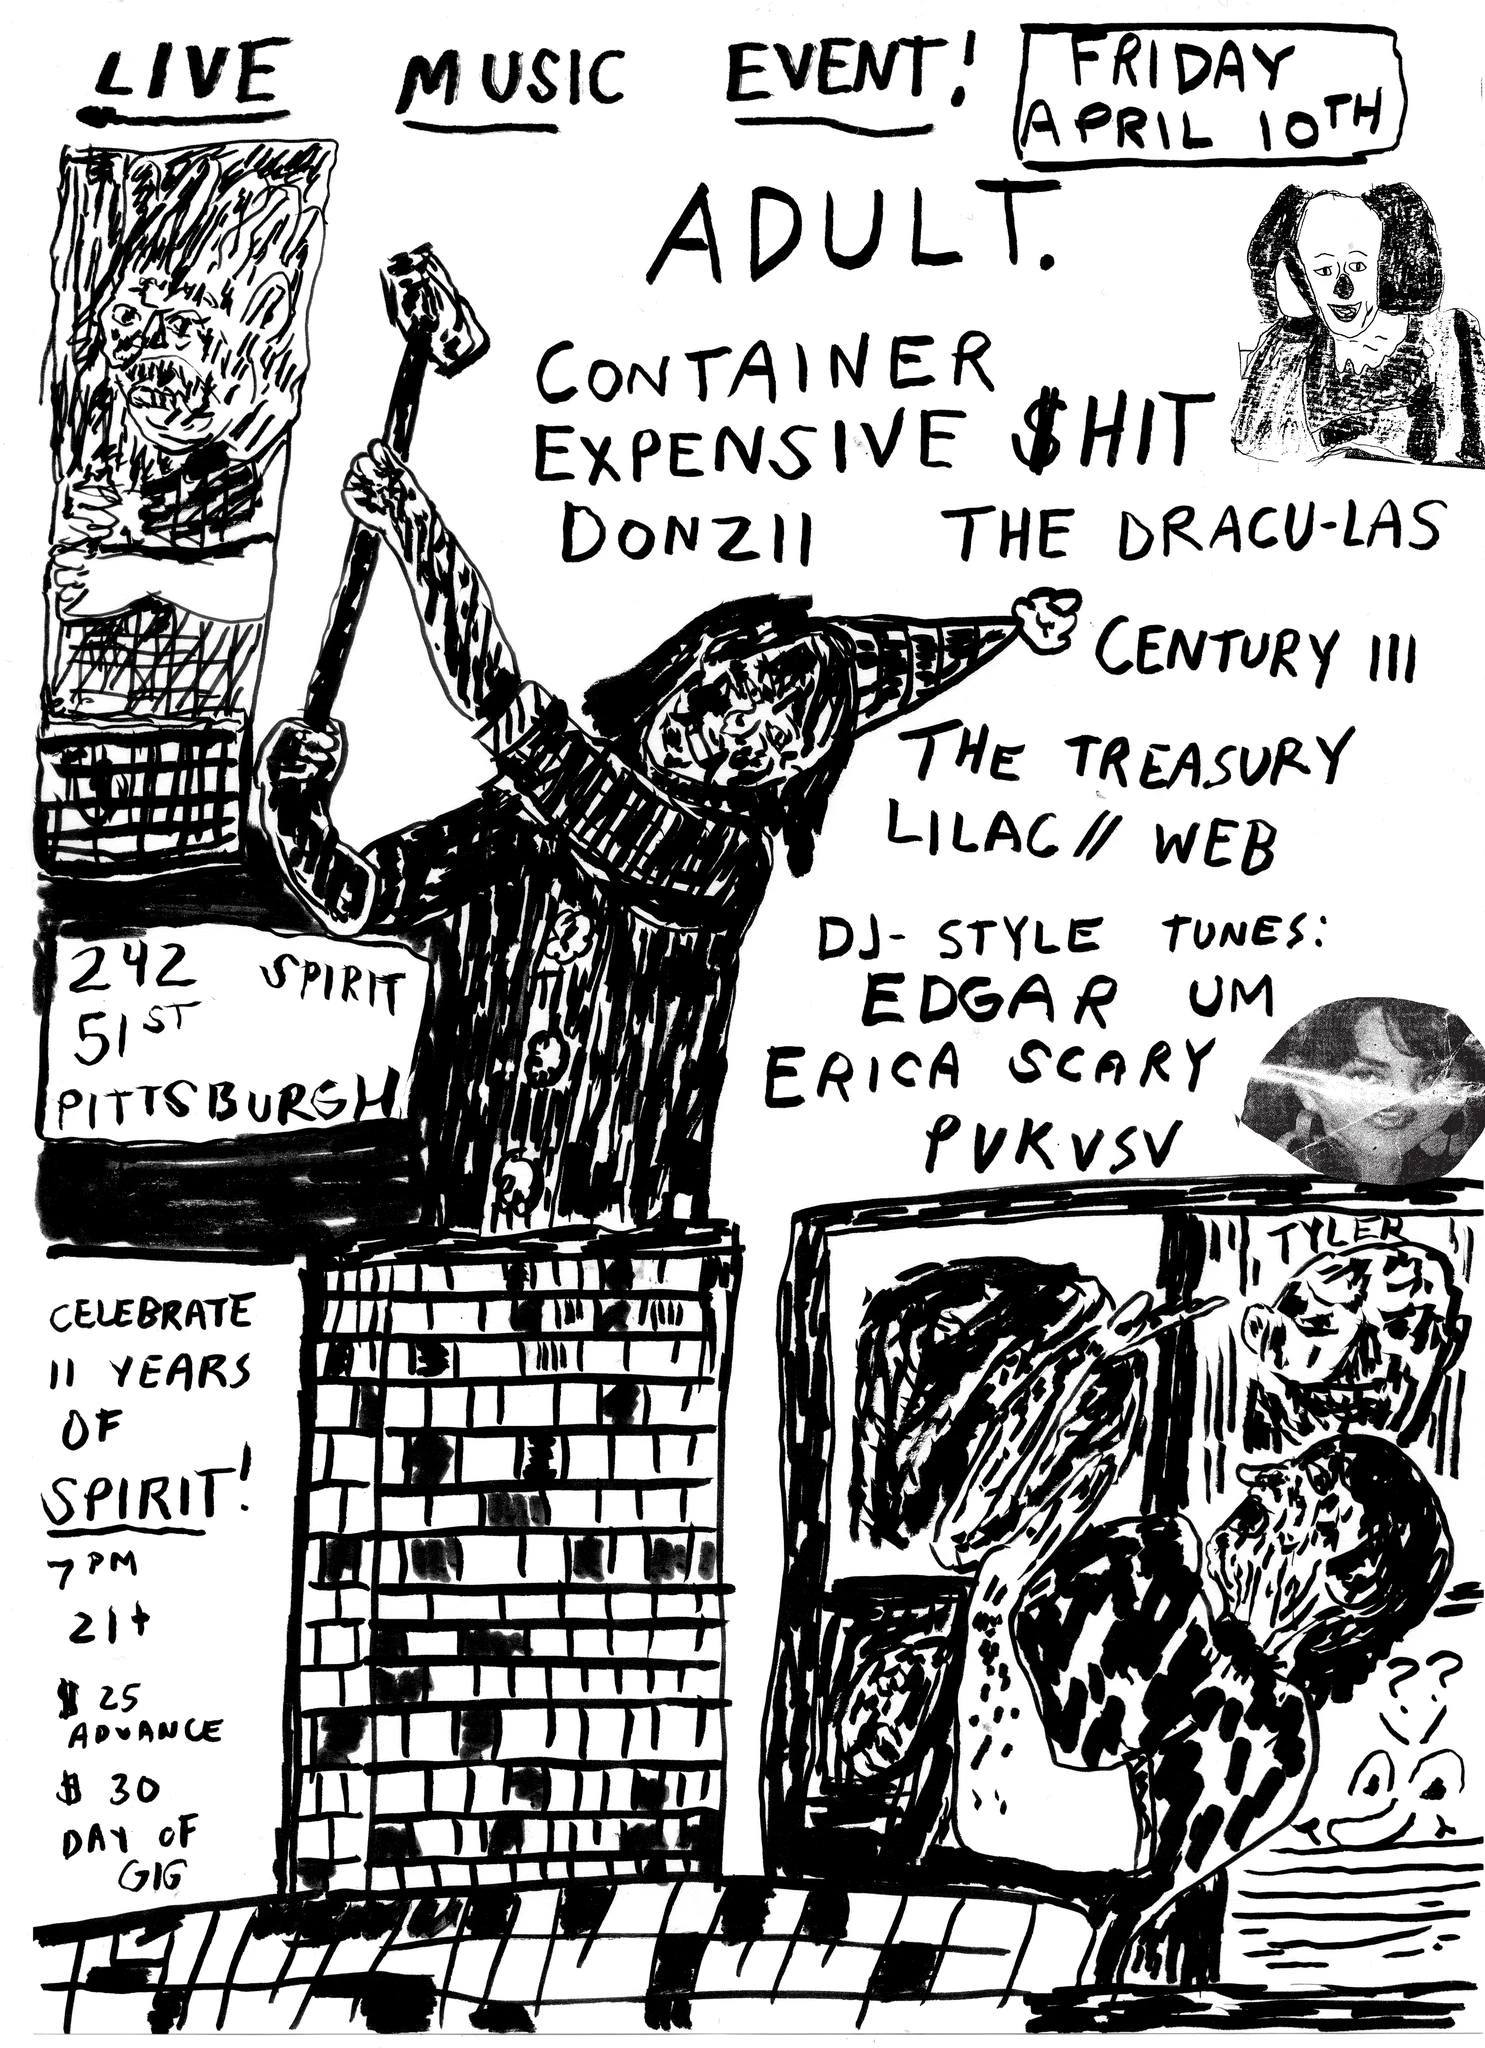 LIVE MUSIC EVENT!
FRIDAY
APRIL 10TH
ADULT.
CONTAINER
EXPENSIVE $HIT
DONZII THE DRACU-LAS
CENTURY III
THE TREASURY
LILAC // WEB
DJ-STYLE TUNES:
EDGAR UM
ERICA SCARY
PVKVSV
242 SPIRIT
51ST
PITTSBURGH
CELEBRATE
11 YEARS
OF
SPIRIT!
7PM
21+
$25
ADVANCE
$30
DAY OF
GIG
TYLER
??